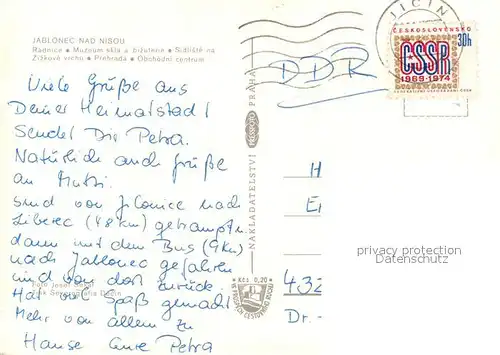 JABLONEC NAD NISOU
Radnice • Muzeum skla a bižuterie • Sídliště na
Žižkově vrchu • Přehrada • Obchodní centrum
JIČÍN
ČESKOSLOVENSKO
30h
ČSSR
1969-1974
DDR
Viele Grüße aus
Deiner Heimatstadt
sendet Dir Petra.
Natürlich auch Grüße
an Mutti.
Sind von Jilovice nach
Liberec (18 km) getrampt
dann mit dem Bus (9 km)
nach Jablonec gefahren
und von dort zurück.
Hat viel Spaß gemacht
Mehr von allem zu
Hause Eure Petra
Foto Josef
Tisk Severografia Děčín
NAKLADATELSTVÍ PRESSFOTO PRAHA
Kčs 0,20
H
432
Dr.-
privacy protection
Datenschutz